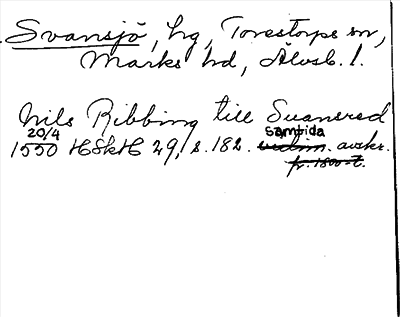 Svansjö, hg, Torestorps sn,
Marks hd, Älvsb. l.
Nils Ribbing till Suanered
20/4 samtida
1550 HSkH 29, s. 182. avskr.
fr. 1800-t.